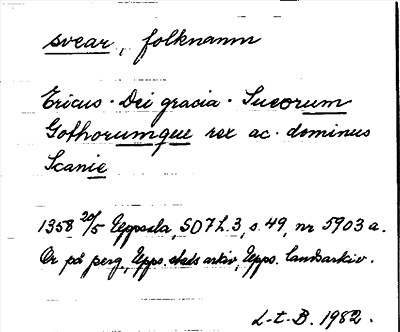 svear, folknamn
Ericus · Dei gracia · Sueorum
Gothorumque rex ac · dominus
Scanie
1358 20/5 Uppsala, SD 7 h. 3, s. 49, nr 5903 a.
Or på perg, Upps. stads arkiv, Upps. landsarkiv.
L-t. B. 1982.